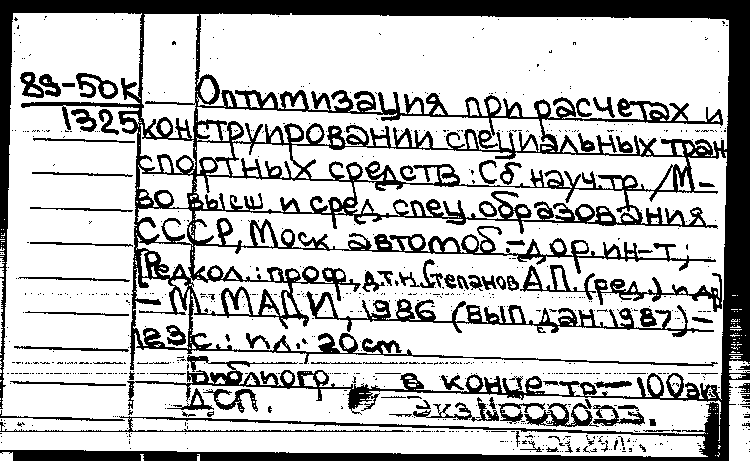 89-50к
1325
Оптимизация при расчетах и
конструировании специальных тран
спортных средств: Сб. науч. тр. / М-
во высш. и сред. спец. образования
СССР, Моск. автомоб.-дор. ин-т;
[Редкол.: проф., д.т.н. Степанов А.П. (ред.) и др]
- М.: МАДИ, 1986 (вып. дан. 1987) -
123 с.: ил.; 20 см.
Библиогр. в конце тр. - 100 экз
ДСП. Экз. N000003.